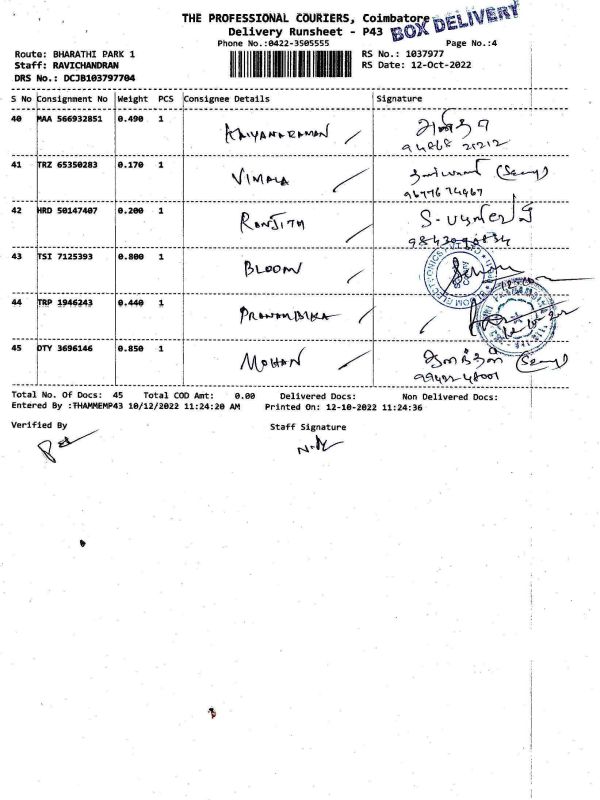 THE PROFESSIONAL COURIERS, Coimbatore
BOX DELIVERY
Delivery Runsheet - P43
Phone No.:0422-3505555 Page No.:4
Route: BHARATHI PARK 1 RS No.: 1037977
Staff: RAVICHANDRAN RS Date: 12-Oct-2022
DRS No.: DCJB103797704
S No Consignment No Weight PCS Consignee Details Signature
40 MAA 566932851 0.490 1 KALYANARAMAN /
41 TRZ 65350283 0.170 1 VIMALA /
42 HRD 50147407 0.200 1 RANJITH /
43 TSI 7125393 0.800 1 BLOOM /
44 TRP 1946243 0.440 1 PRANAMBIKA / /
45 DTY 3696146 0.850 1 MOHAN /
Total No. Of Docs: 45 Total COD Amt: 0.00 Delivered Docs: Non Delivered Docs:
Entered By :THAMMEMP43 10/12/2022 11:24:20 AM Printed On: 12-10-2022 11:24:36
Verified By Staff Signature